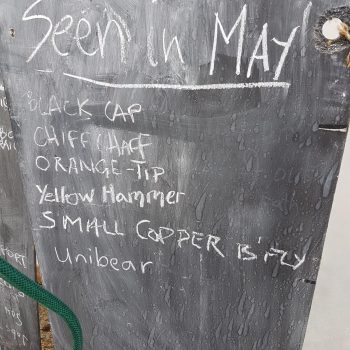 Seen in MAY!
BLACK CAP
CHIFF CHAFF
ORANGE-TIP
Yellow Hammer
SMALL COPPER B'FLY
Unibear